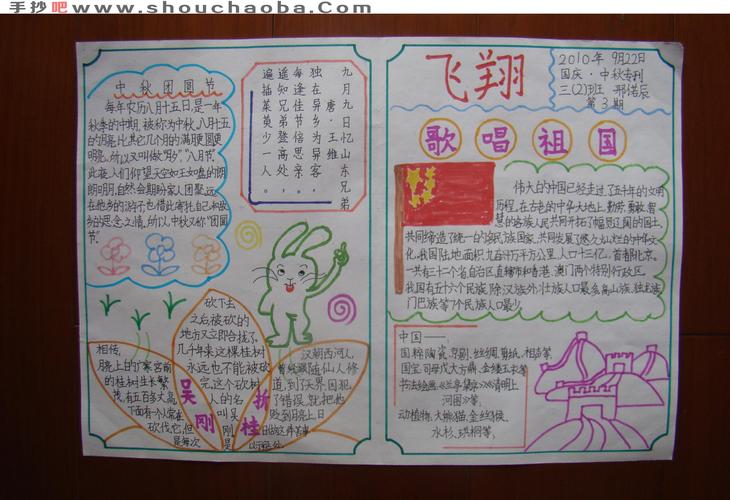 手抄吧 www.shouchaoba.com 收集
中秋团圆节
每年农历八月十五日,是一年
秋季的中期,被称为中秋。八月十五
的月亮,比其它几个月的满月更圆更
明亮。所以又叫做"月夕""八月节"
此夜人们仰望天空如玉如盘的朗
朗明月,自然会期盼家人团聚,远
在他乡的游子,也借此寄托自己对故
乡的思念之情。所以中秋又称"团圆
节"。
九月九日忆山东兄弟
唐·王维
独在异乡为异客。
每逢佳节倍思亲。
遥知兄弟登高处,
遍插茱萸少一人。
吴刚折桂
相传,
月亮上的广寒宫前
的桂树生长繁
茂,有五百多丈高,
下面有个人常在
砍伐它,但
是每次
砍下去
之后被砍的
地方又立即合拢了。
几千年来这棵桂树
永远也不能被砍
完。这个砍树
人的名
叫吴
刚
是
汉朝西河人,
曾经跟随仙人修
道,到了天界,因犯
了错误,就把他
贬到月亮上日
飞翔
2010年 9月22日
国庆·中秋专刊
三(2)班 邢偌辰
第3期
歌唱祖国
伟大的中国已经走过了五千年的文明
历程,在古色的中华大地上,勤劳,勇敢,智
慧的各族人民共同开拓了幅员辽阔的国土,
共同缔造了统一的多民族国家,共同发展了悠久灿烂的中华文
化。我国陆地面积九百六十万平方公里,人口十三亿。首都北京。
一共有三十二个省自治区直辖市和香港,澳门两个特别行政区。
我国有五十六个民族,除汉族外,壮族人口最多,高山族,独龙族
门巴族等7个民族人口最少。
中国——,
国粹:陶瓷,京剧,丝绸,剪纸,相声等,
国宝:司母戊大方鼎,金缕玉衣等
书法绘画:《兰亭集序》《清明上
河图》等,
动植物:大熊猫,金丝猴,
水杉,珙桐等,